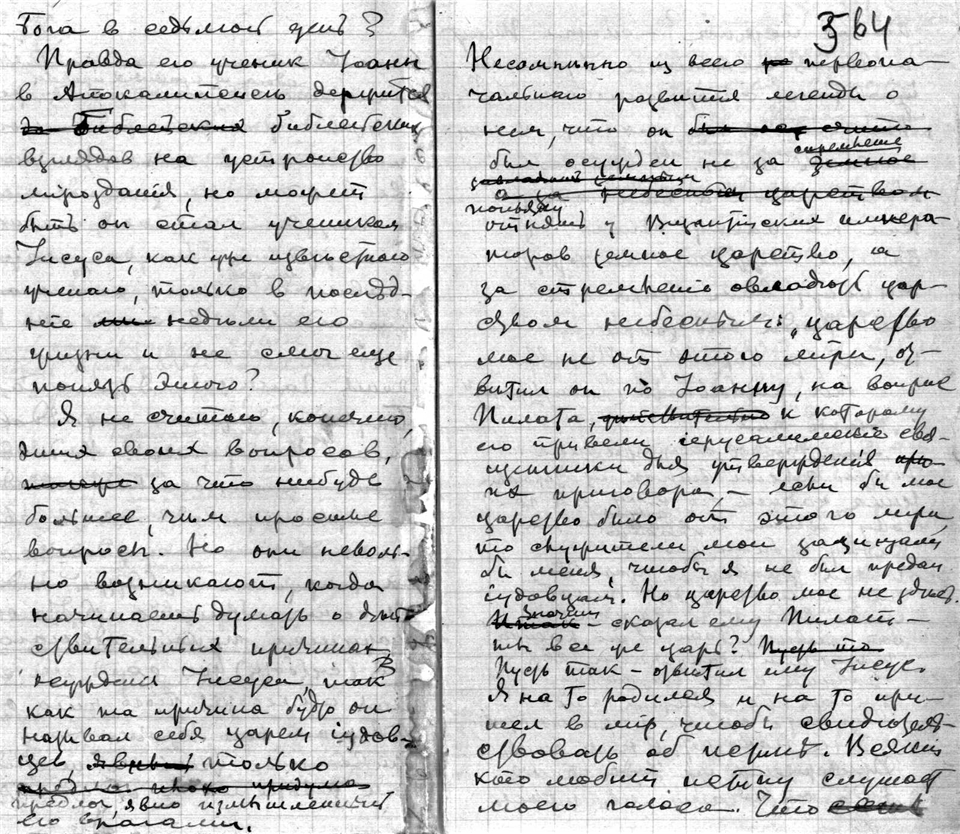 Бога в седьмой день?
Правда его ученик Іоанн
в Апокалипсисѣ держится
библейских
взглядов на устройство
мірозданія, но может
быть он стал учеником
Іисуса, как уже извѣстного
ученаго, только в послѣд-
ніе недѣли его
жизни и не смог еще
понять этого?
Я не считаю, конечно,
этих своих вопросов,
за что нибудь
большее, чѣм простые
вопросы. Но они неволь-
но возникают, когда
начинаешь думать о дѣй-
ствительных причинах
осужденія Іисуса, так
как та причина будто он
называл себя царем іудов-
цев, только
предлог, явно измышленный
его врагами.
564
Несомнѣнно из всего первона-
чальнаго развитія легенды о
нем, что он
был осужден не за стремленіе
отнять у Византійских импера-
торов земное царство, а
за стремленіе овладѣть цар-
ством небесным: „царство
мое не от этого міра, от-
вѣтил он по Іоанну, на вопрос
Пилата, к которому
его привели іерусалимскіе свя-
щенники для утвержденія
их приговора, — если бы мое
царство было от этого міра,
то служители мои защищали
бы меня, чтобы я не был предан
іудовцам. Но царство мое не здѣсь.
Значит — сказал ему Пилат —
ты все же царь?
Пусть так — отвѣтил ему Іисус.
Я на то родился и на то при-
шел в мір, чтобы свидѣтель-
ствовать об истинѣ. Всякій
кто любит истину слушает
моего голоса. Что